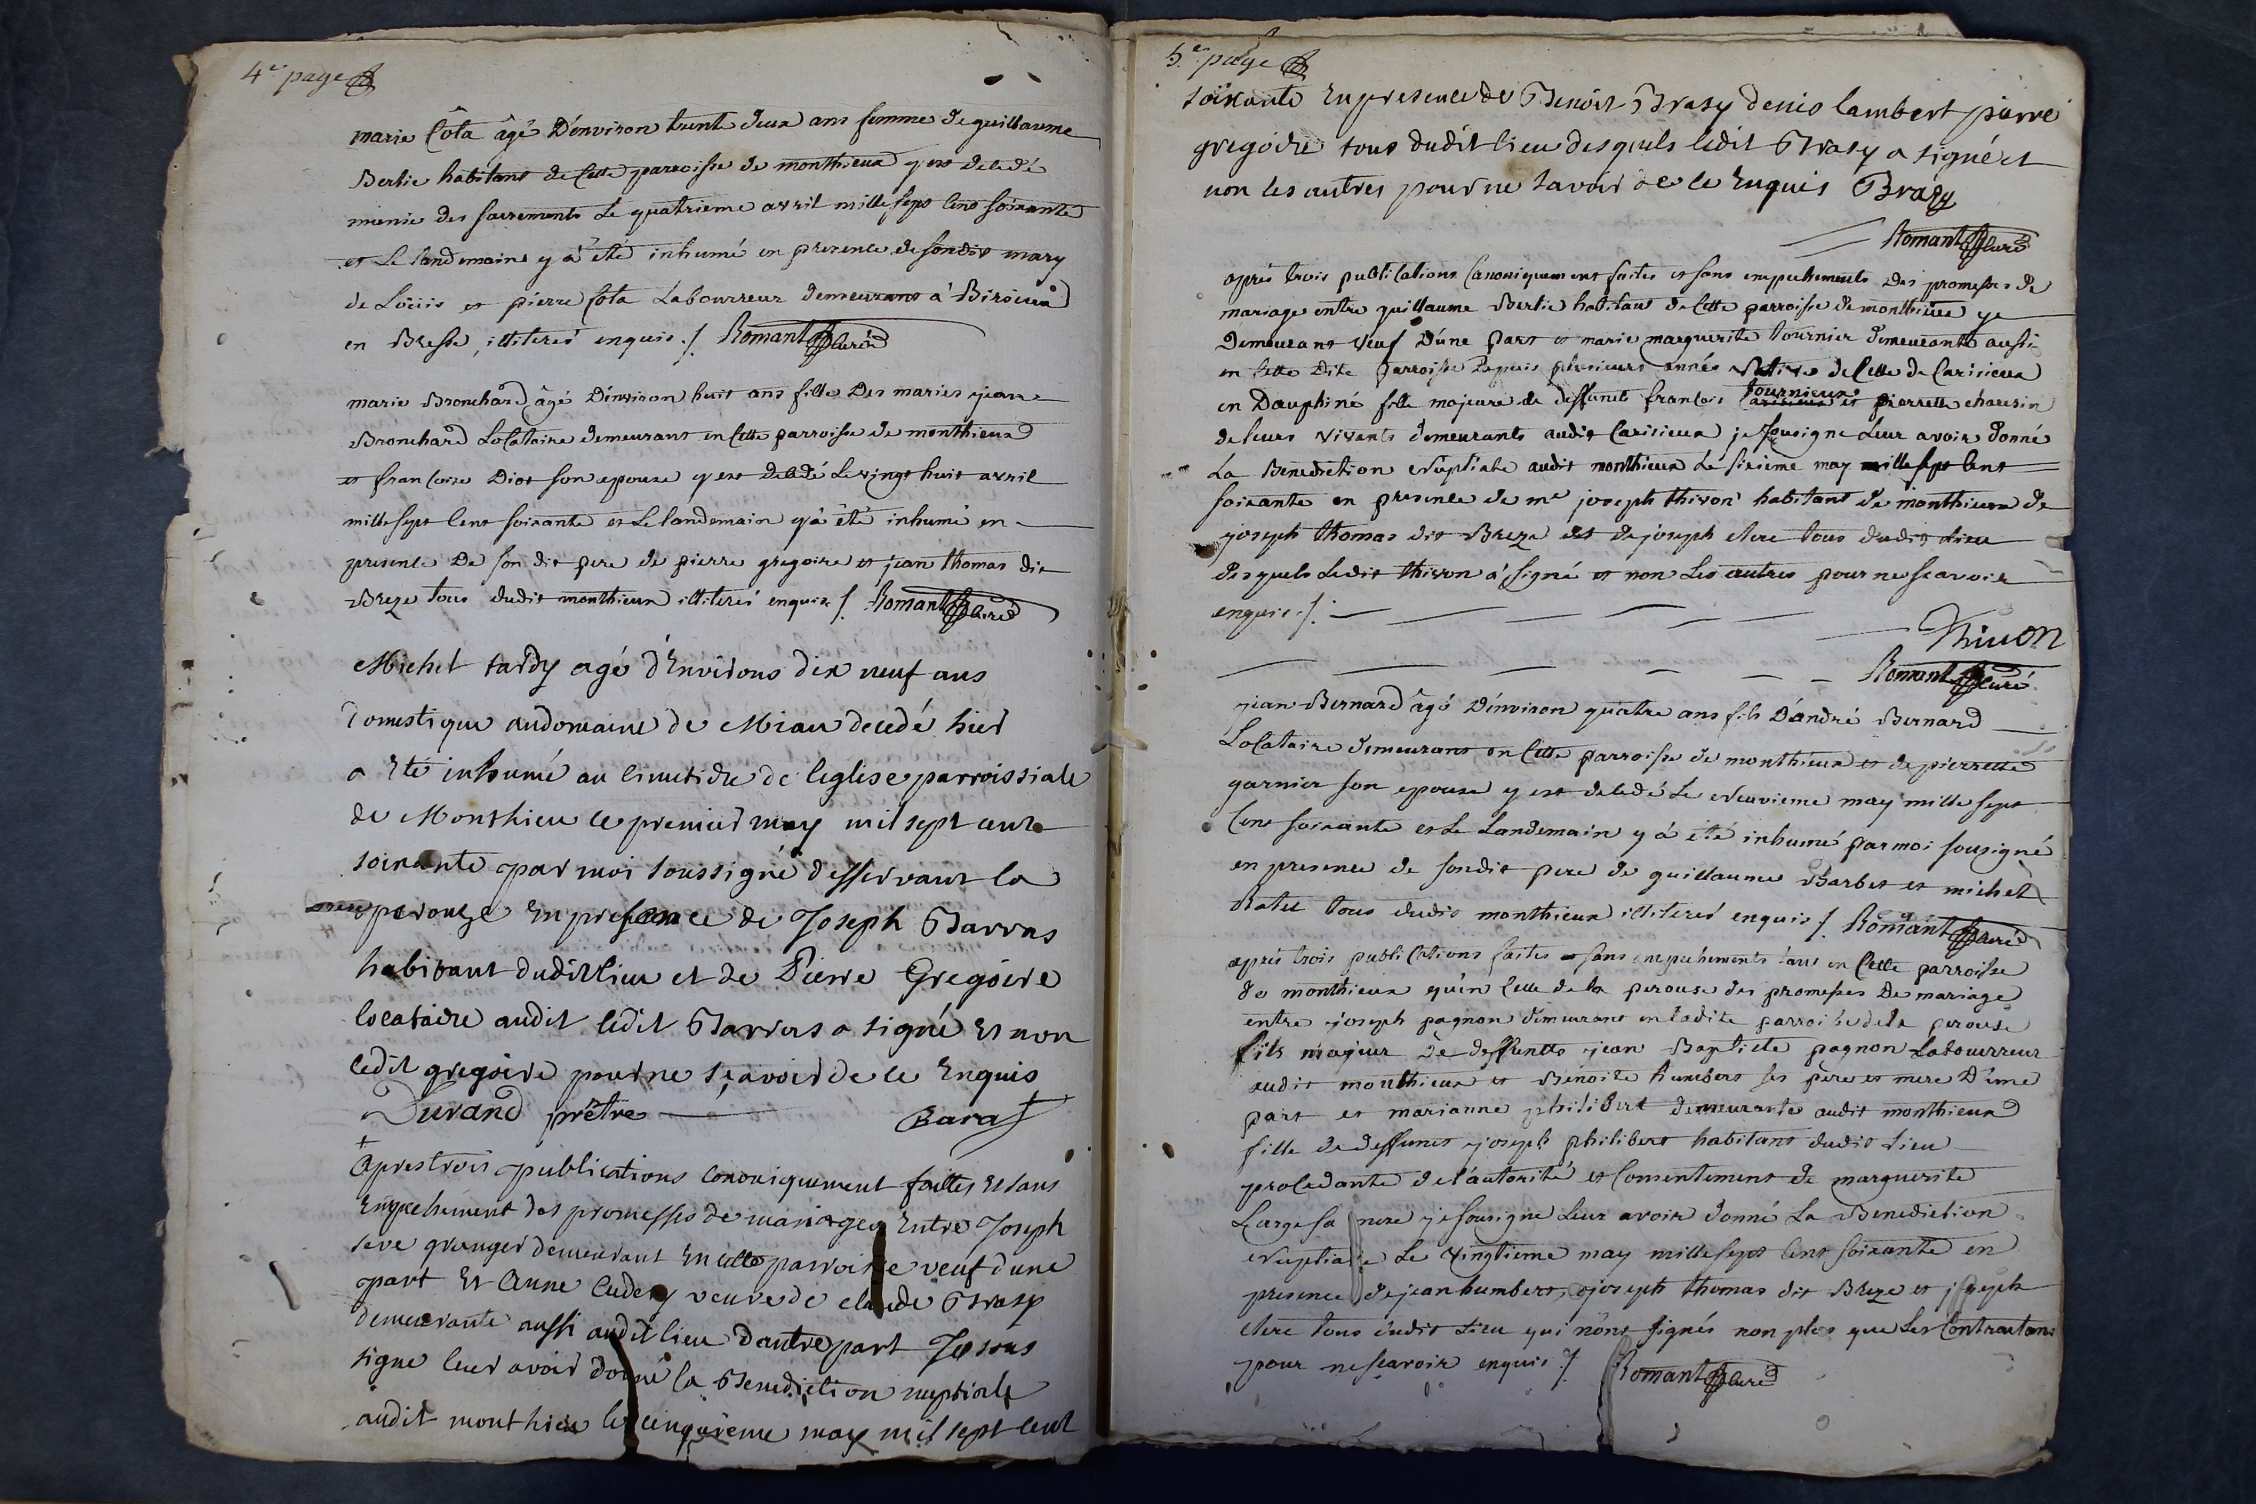 4e page
marie Cota âgé D'environ trente deux ans femme de guillaume
Bertie habitant de Cette parroisse de monthieux y est decedé
munie des sacrements Le quatrieme avril mille sept Cent soixante
et Le landemain y a été inhumé en presence de sondit mary
de Loüis et pierre Cota Labourreur demeurant à Birieux
en Bresse, illiterés enquis ./. Romant Curé
marie Bronchard âgé D'environ huit ans fille Des mariés jean
Bronchard Locataire demeurant en Cette parroisse de monthieux
et francoise Diot son epouse y est decedé Le vingt huit avril
mille sept Cent soixante et Le landemain y a été inhumé en
presence De son dit pere de pierre gregoire et jean thomas dit
Breze tous dudit monthieux illiterés enquis ./. Romant Curé
Michel tardy agé d'Environs dix neuf ans
domestique au domaine de Mian decedé hier
a Eté inhumé au cimetidre de leglise parroissiale
de Monthieu ce premier may mil sept cent
soixante par moi soussigné desservant la
perouze En presence de Joseph Barras
habitant dudit lieu et de Pierre Gregoire
locataire audit ledit Barras a signé Et non
ledit gregoire pour ne sçavoir de ce Enquis
Durand prêtre Barat
Apres trois publications canoniquement faittes Et sans
Empechement des promesses de mariages Entre Joseph
seve granger demeurant En cette parroisse veuf dune
part Et Anne Cudery veuve de claude Brasy
demeurante aussi audit lieu dautre part Je sous
signe leur avoir donné la Benediction nuptiale
audit monthieu le cinquieme may mil sept cent
5e page
soixante En presence de Benoit Brasy denis lambert pierre
gregoire tous dudit lieu desquels ledit Brasy a signé et
non les autres pour ne savoir de ce Enquis Brazy
Romant Curé
après trois publications Canoniquement faites et sans empechements Des promesses de
mariage entre guillaume Bertie habitant de Cette parroisse de monthieux y
Demeurant veuf D'une part et marie marguerite tournier demeurante aussi
en Cette Dite parroisse Depuis plusieurs années Native de Celle de Carisieux
en Dauphiné fille majeure de deffunts francois tournieux et pierrette chausin
de leurs vivants demeurants audit Carisieux je sousigne Leur avoir Donné
La Benediction Nuptiale audit monthieux Le sixieme may mille sept Cent
soixante en presence de me joseph thivon habitant de monthieux de
joseph thomas dit Breze et de joseph clere tous dudit Lieu
desquels Ledit thivon a signé et non Les autres pour ne scavoir
enquis ./.
Thivon
Romant Curé
jean Bernard âgé D'environ quatre ans fils D'andré Bernard
Locataire demeurant en Cette parroisse de monthieux et de pierrette
garnier son epouse y est decedé Le Neuvieme may mille sept
Cent soixante et Le Landemain y a été inhumé par moi sousigné
en presence de sondit pere de guillaume Barbet et michel
Ratel tous dudit monthieux illiterés enquis ./. Romant Curé
après trois publications faites et sans empechements tant en Cette parroisse
de monthieux qu'en Celle de la perouse des promesses De mariage
entre joseph pagnon demeurant en ladite parroisse de la perouse
fils majeur de deffuncts jean Baptiste pagnon Labourreur
audit monthieux et Benoite humbert ses père et mere D'une
part et marianne philibert demeurante audit monthieux
fille de deffunct joseph philibert habitant dudit Lieu
procedante de l'autorité et Consentement de marguerite
Large sa mere je sousigne Leur avoir donné La Benediction
Nuptiale Le vingtieme may mille sept Cent soixante en
presence de jean humbert, joseph thomas dit Breze et joseph
clere tous dudit Lieu qui n'ont signés non plus que Les Contractans
pour ne scavoir enquis ./. Romant Curé